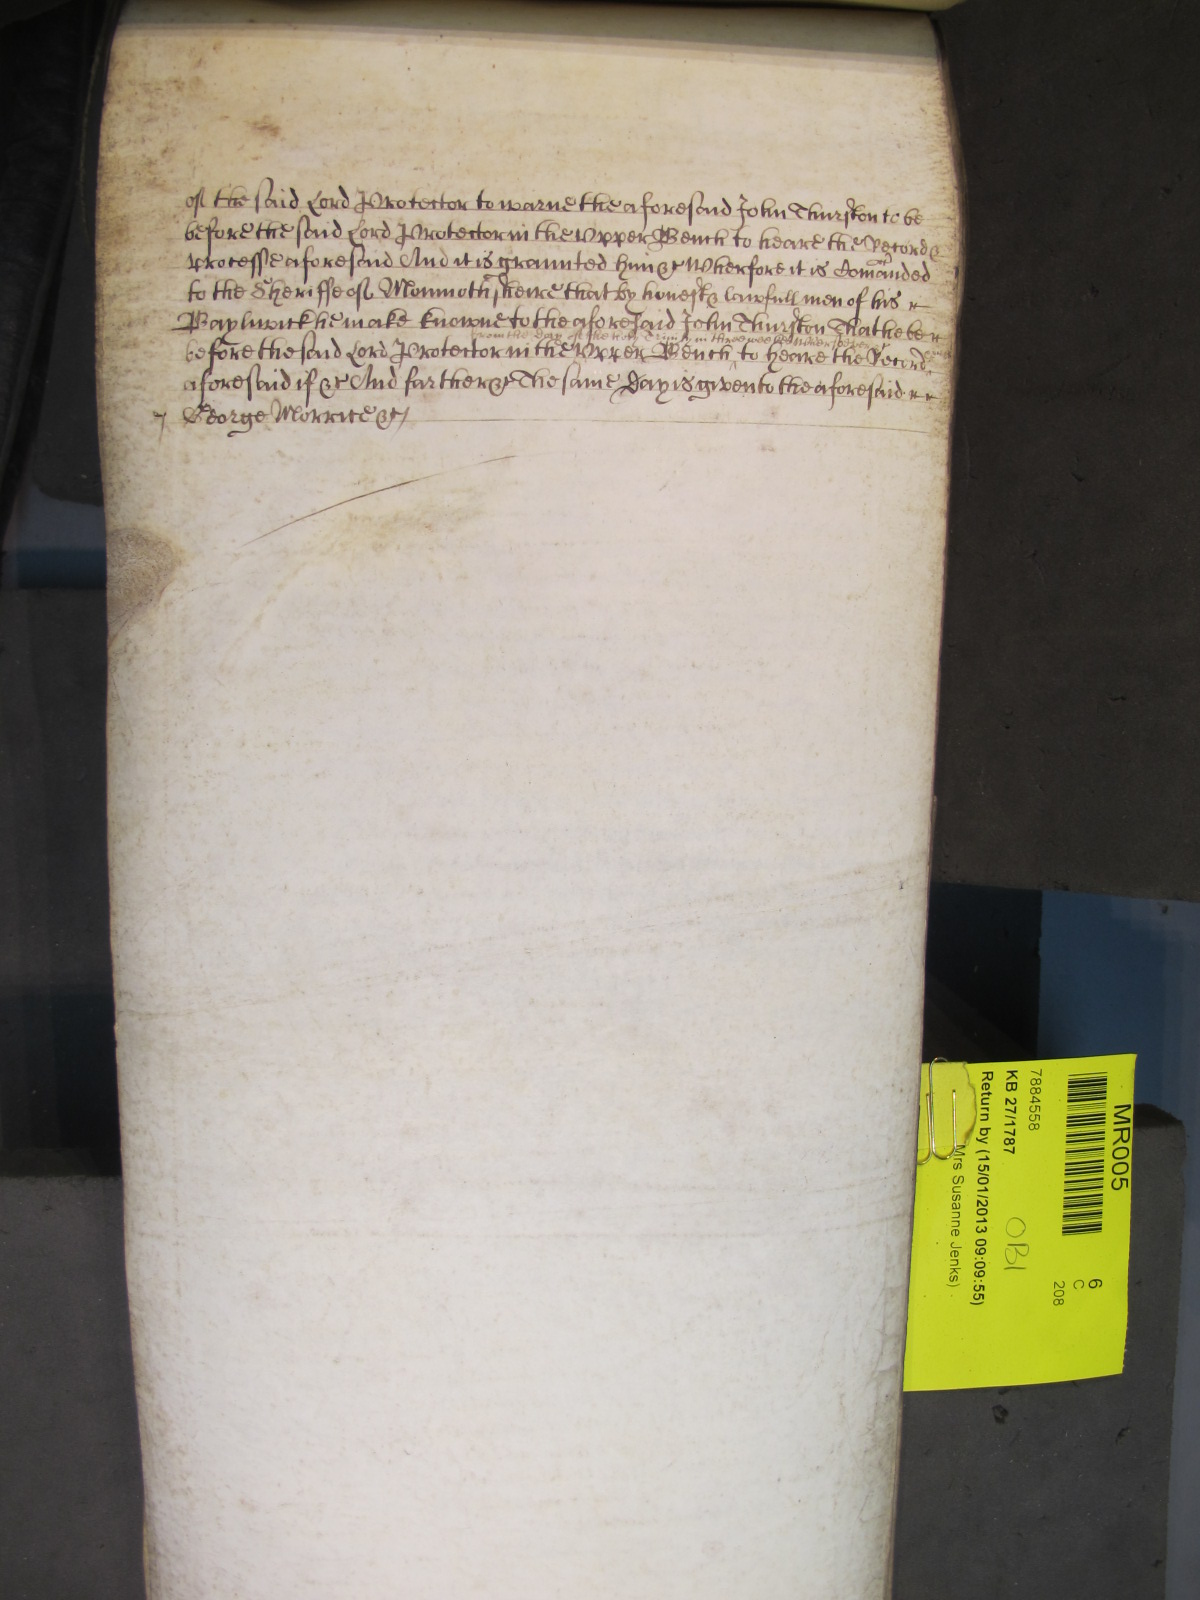 of the said Lord Protector to warne the aforesaid John Thurston to be
before the said Lord Protector in the Upper Bench to heare the Record &
Processe aforesaid And it is graunted him &c Wherfore it is Comanded
to the Sheriffe of Monmothsheire that by honest & lawfull men of his
Baylywick he make knowne to the aforesaid John Thurston That he be
from the day of the holy Trinity in three weekes wheresoever
before the said Lord Protector in the Upper Bench to heare the Record
aforesaid if &c And farther &c The same Day is given to the aforesaid
George Morrice &c
MR005
6
C
208
7884558
KB 27/1787
OBI
Return by (15/01/2013 09:09:55)
Mrs Susanne Jenks)